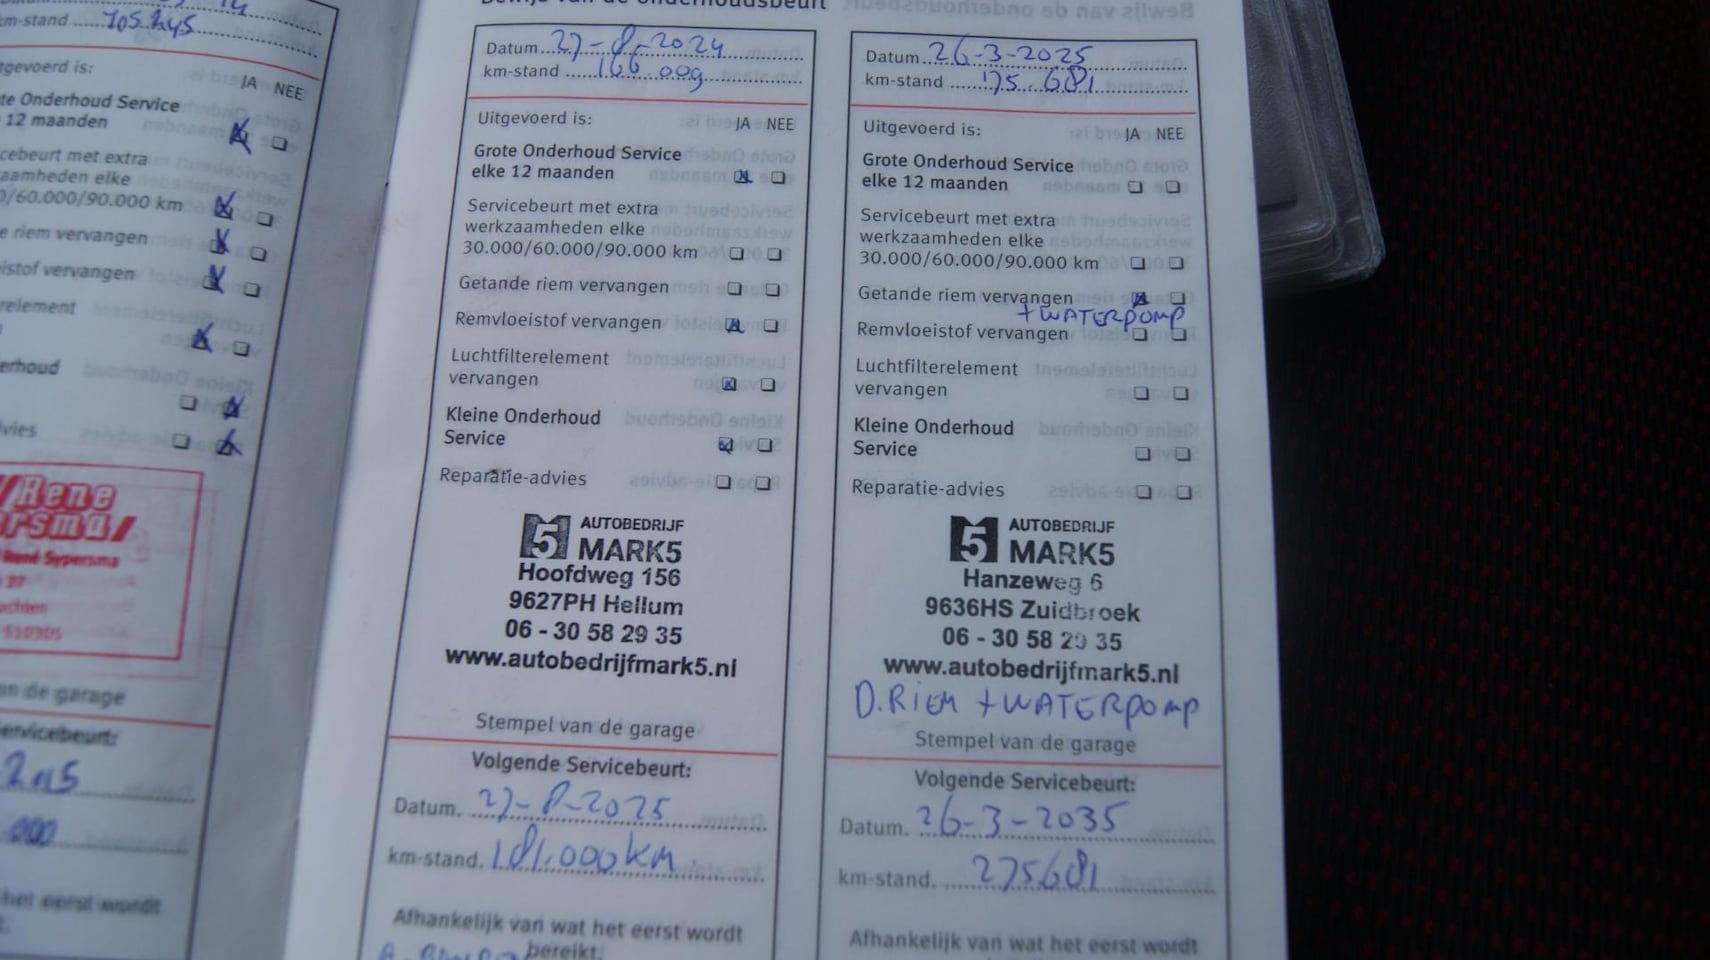 km-stand 105.245
tgevoerd is:
JA NEE
te Onderhoud Service
12 maanden
cebeurt met extra
zaamheden elke
0/60.000/90.000 km
e riem vervangen
istof vervangen
relement
erhoud
vies
Rene
ersma
René Sypersma
27
achten
510305
an de garage
Servicebeurt:
2015
.000
het eerst wordt
Datum 27-8-2024
km-stand 166.009
Uitgevoerd is: JA NEE
Grote Onderhoud Service
elke 12 maanden
Servicebeurt met extra
werkzaamheden elke
30.000/60.000/90.000 km
Getande riem vervangen
Remvloeistof vervangen
Luchtfilterelement
vervangen
Kleine Onderhoud
Service
Reparatie-advies
5 AUTOBEDRIJF
MARK5
Hoofdweg 156
9627PH Hellum
06 - 30 58 29 35
www.autobedrijfmark5.nl
Stempel van de garage
Volgende Servicebeurt:
Datum. 27-8-2025
km-stand. 181.000 km
Afhankelijk van wat het eerst wordt
bereikt.
Datum 26-3-2025
km-stand 175.681
Uitgevoerd is: JA NEE
Grote Onderhoud Service
elke 12 maanden
Servicebeurt met extra
werkzaamheden elke
30.000/60.000/90.000 km
Getande riem vervangen
+ WATERPOMP
Remvloeistof vervangen
Luchtfilterelement
vervangen
Kleine Onderhoud
Service
Reparatie-advies
5 AUTOBEDRIJF
MARK5
Hanzeweg 6
9636HS Zuidbroek
06 - 30 58 29 35
www.autobedrijfmark5.nl
D.RIEM + WATERPOMP
Stempel van de garage
Volgende Servicebeurt:
Datum. 26-3-2035
km-stand. 275681
Afhankelijk van wat het eerst wordt